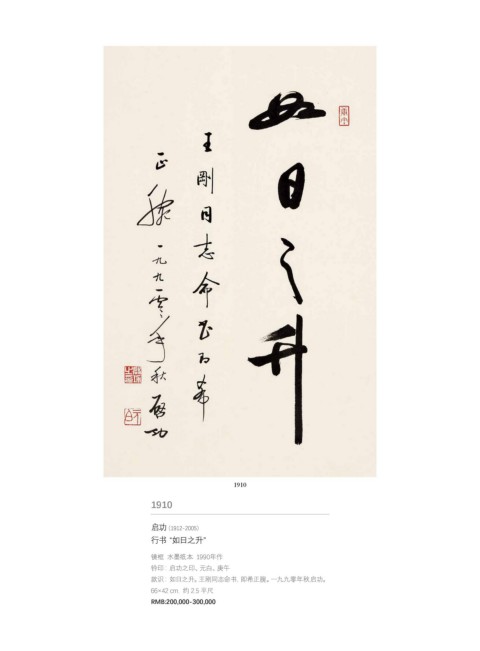 如日之升
王剛同志命书即希
正腕一九九零年秋启功
庚午
1910
1910
启功 (1912-2005)
行书 “如日之升”
镜框 水墨纸本 1990年作
钤印：启功之印、元白、庚午
款识：如日之升。王刚同志命书，即希正腕。一九九零年秋，启功。
66×42 cm 约 2.5 平尺
RMB:200,000-300,000